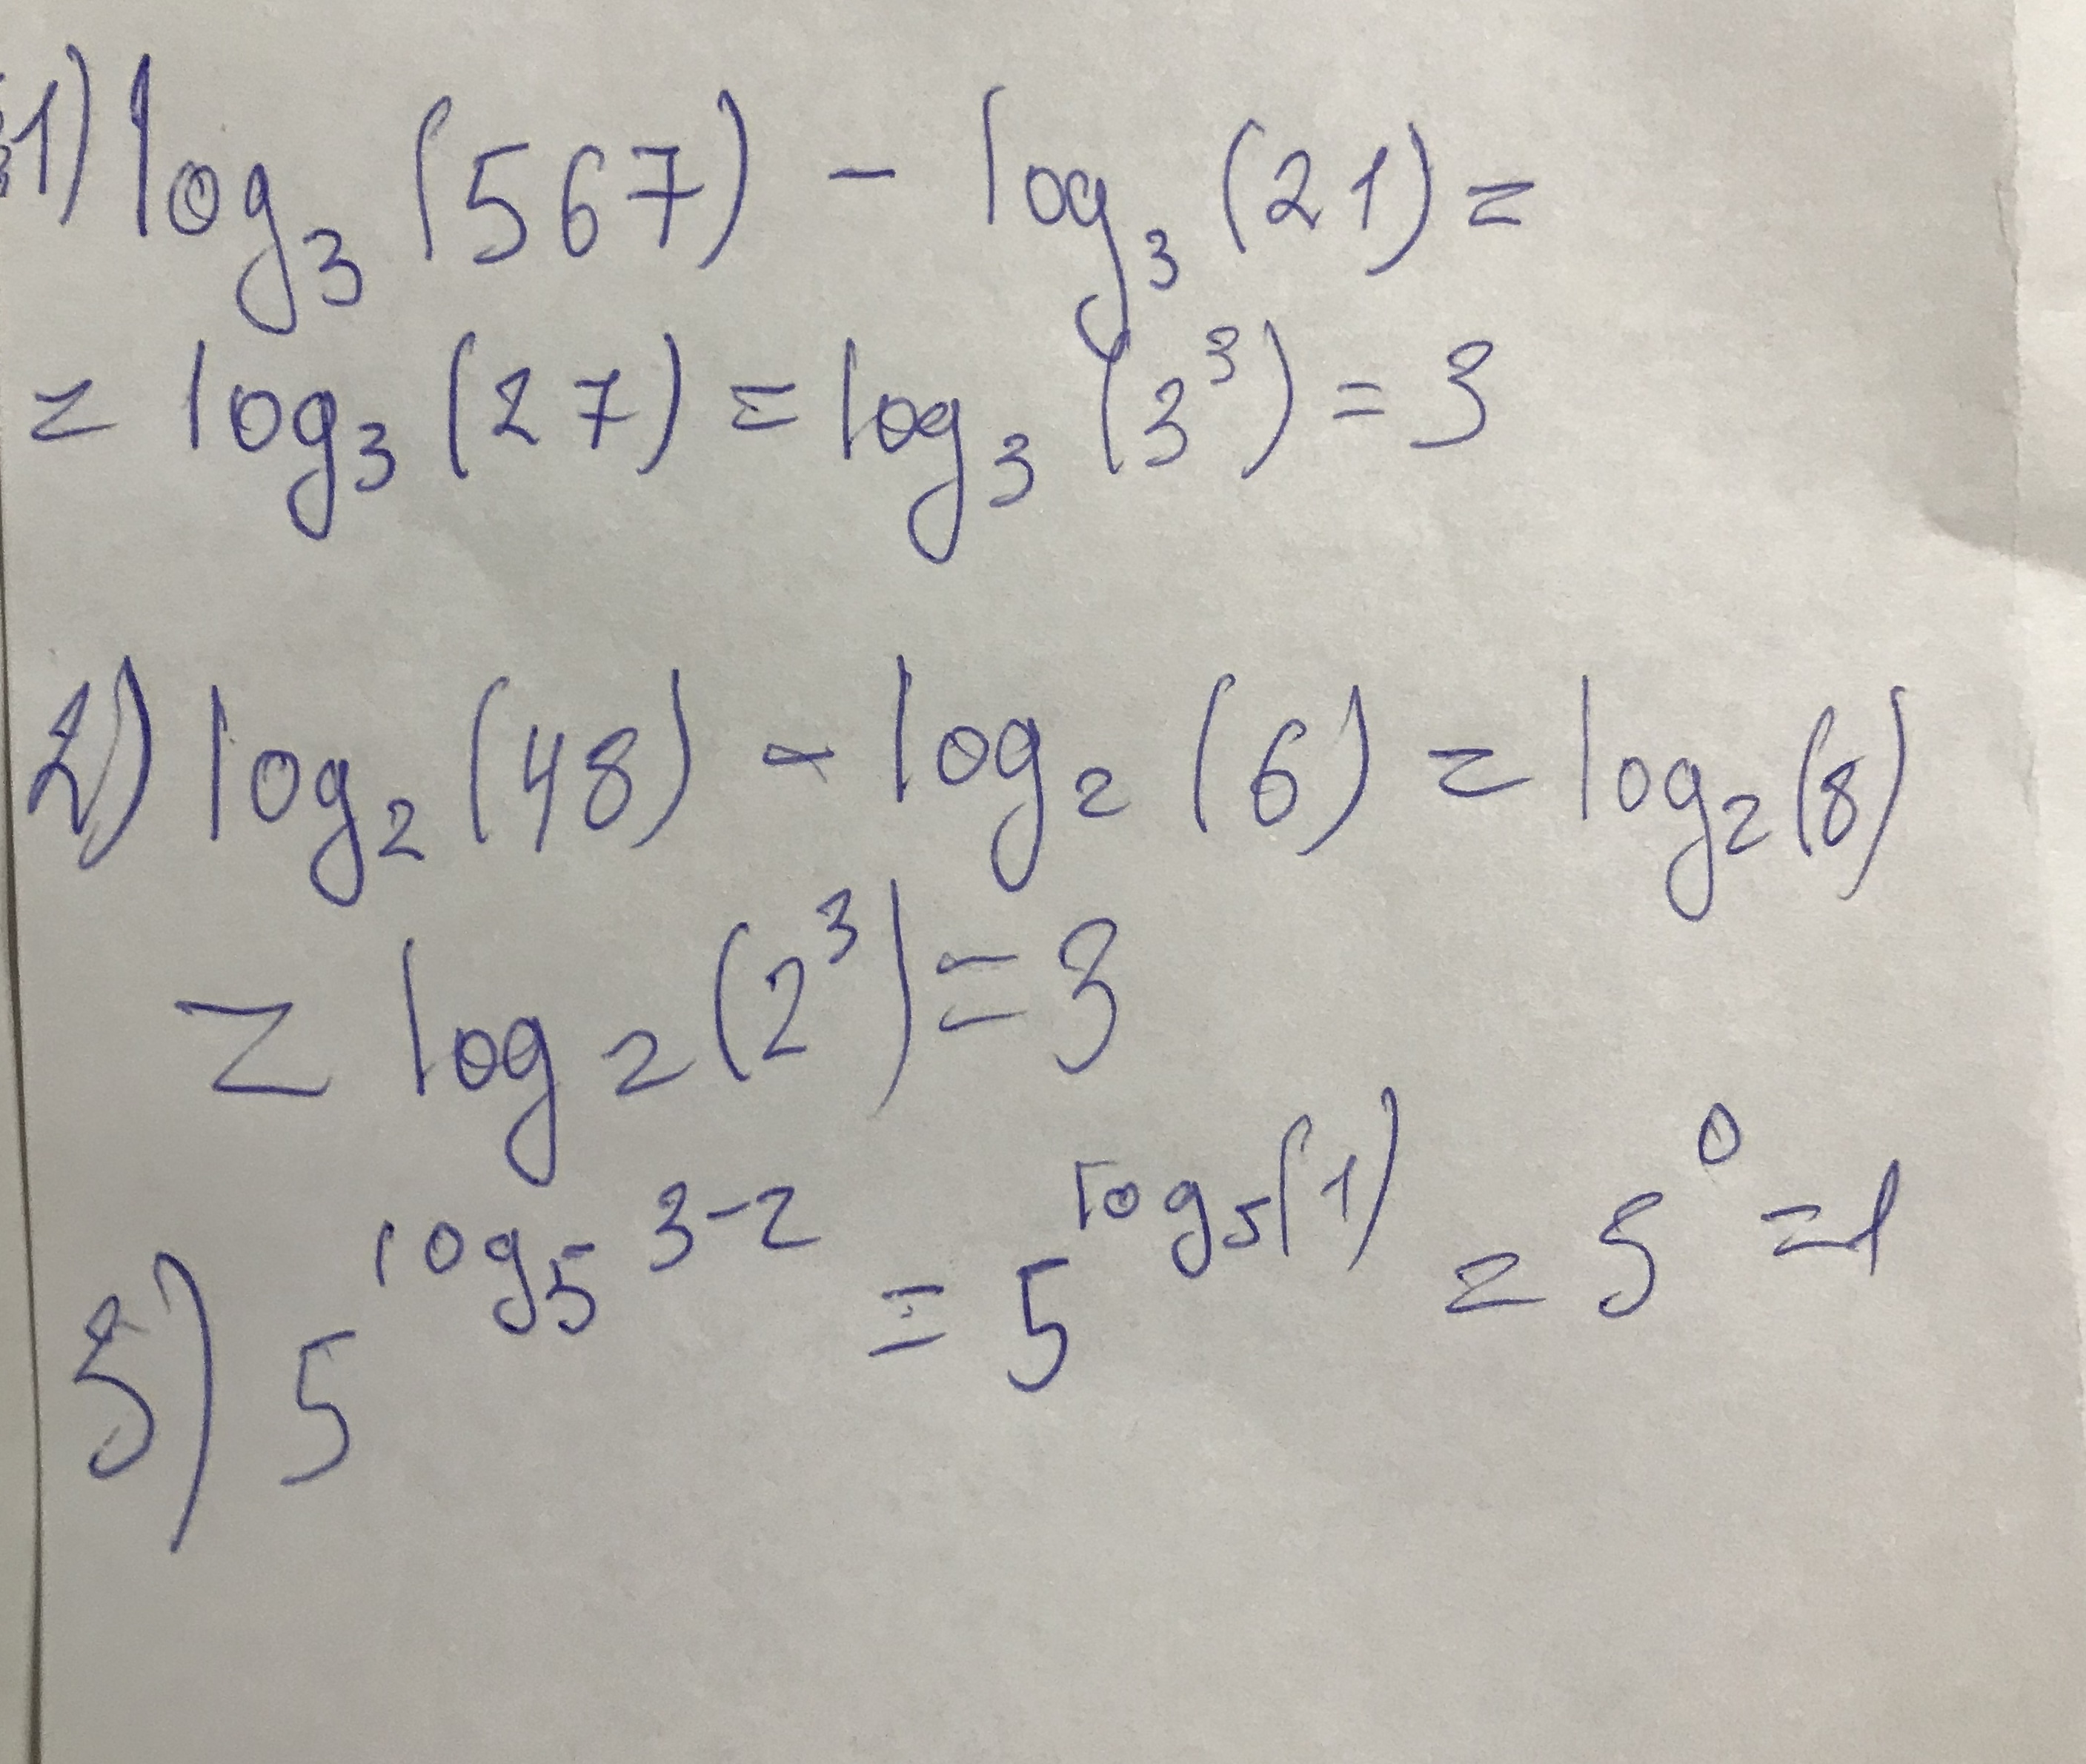 1) log₃ (567) - log₃ (21) =
= log₃ (27) = log₃ (3³) = 3
2) log₂ (48) - log₂ (6) = log₂ (8)
= log₂ (2³) = 3
3) 5^(log₅ 3-2) = 5^(log₅(1)) = 5⁰ = 1